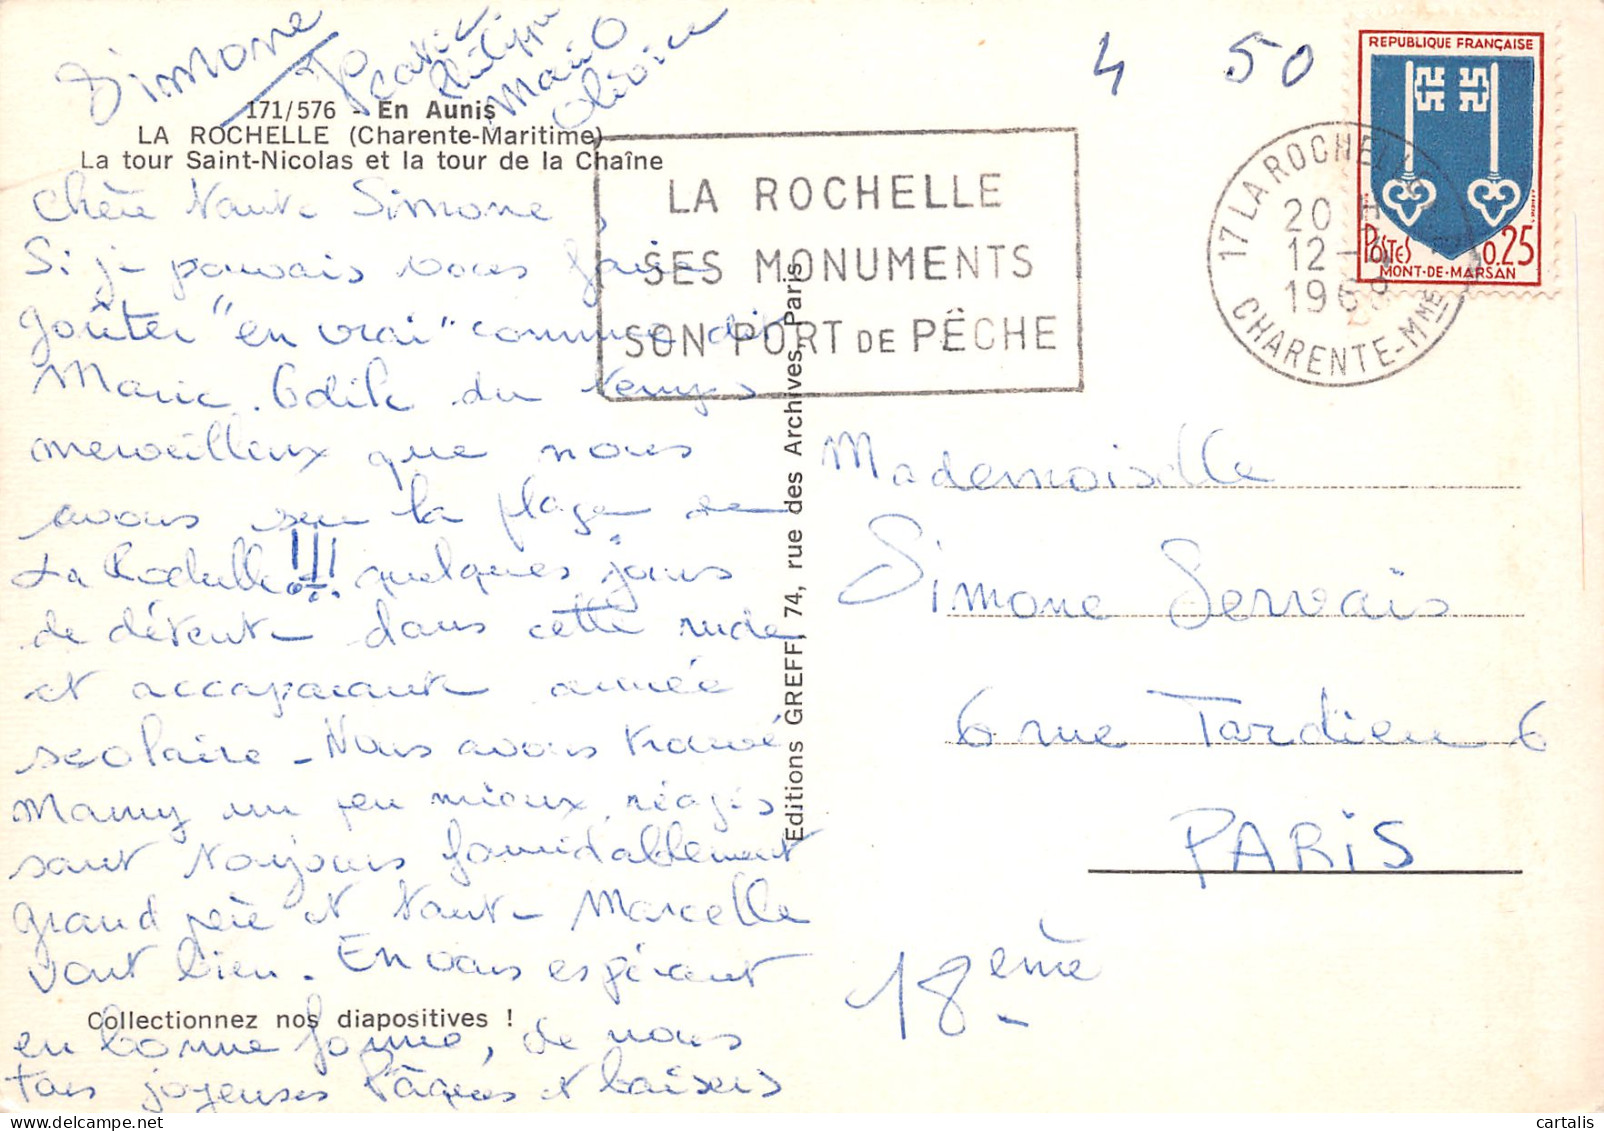 Simone Philippe Mario
4 50
REPUBLIQUE FRANÇAISE
POSTES 0.25
MONT-DE-MARSAN
17 LA ROCHELLE
20 H
12 -
196
CHARENTE-Mme
171/576 - En Aunis
LA ROCHELLE (Charente-Maritime)
La tour Saint-Nicolas et la tour de la Chaîne
LA ROCHELLE
SES MONUMENTS
SON PORT DE PÊCHE
Chère Tante Simone,
Si je pouvais vous faire
goûter "en vrai" comme dit
Marie-Odile du temps
merveilleux que nous
avons sur la plage de
La Rochelle!!! quelques jours
de détente dans cette rude
et accaparante année
scolaire - Nous avons trouvé
Mamy un peu mieux, réagis
sant toujours formidablement
grand père et tante Marcelle
vont bien - En vous espérant
en bonne forme, de nous
tous joyeuses Pâques et baisers
Collectionnez nos diapositives !
Editions GREFF, 74, rue des Archives, Paris
Mademoiselle
Simone Servais
6 rue Tardieu 6
PARIS
18 ème
© cartalis
www.delcampe.net